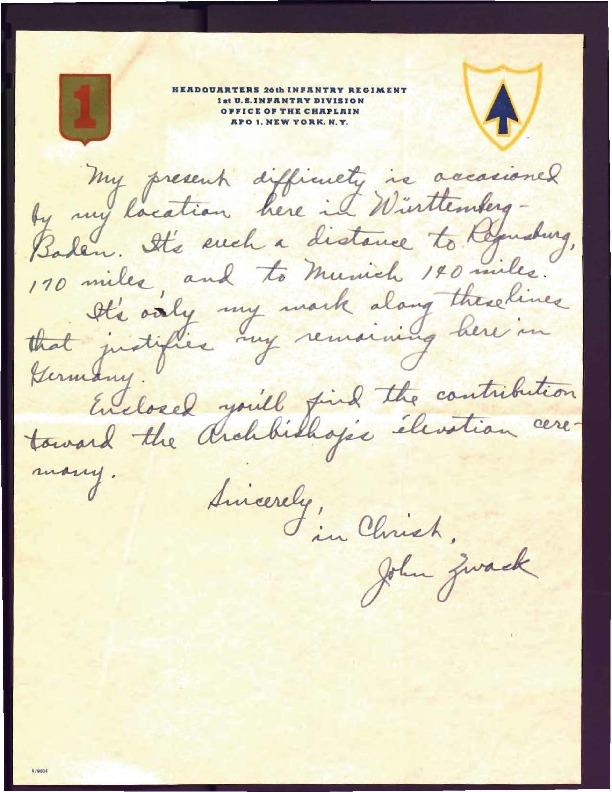 1
HEADQUARTERS 26th INFANTRY REGIMENT
1st U.S. INFANTRY DIVISION
OFFICE OF THE CHAPLAIN
APO 1, NEW YORK, N.Y.
My present difficulty is occasioned
by my location here in Württemberg-
Baden. It's such a distance to Regensburg,
170 miles, and to Munich 140 miles.
It's only my work along these lines
that justifies my remaining here in
Germany.
Enclosed you'll find the contribution
toward the Archbishop's elevation cere-
mony.
Sincerely,
in Christ,
John Zwack